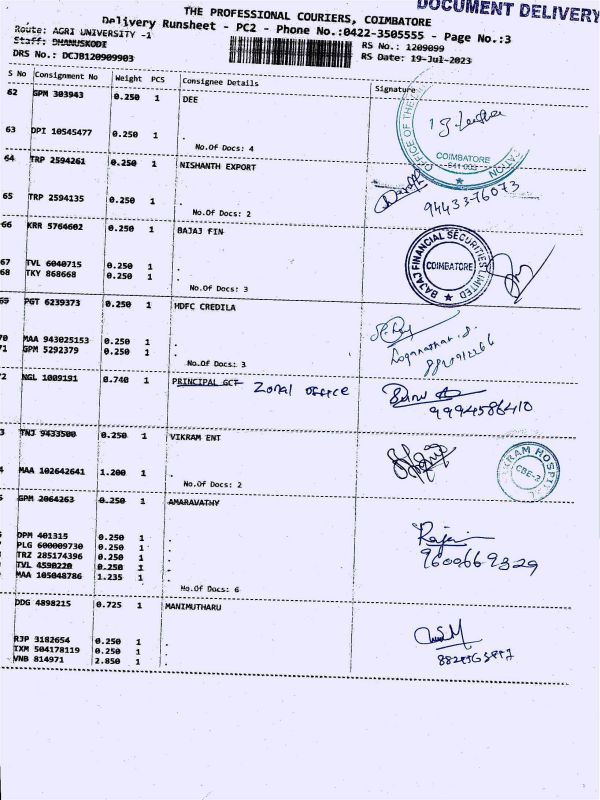 DOCUMENT DELIVERY
THE PROFESSIONAL COURIERS, COIMBATORE
Delivery Runsheet - PC2 - Phone No.:0422-3505555 - Page No.:3
Route: AGRI UNIVERSITY -1
RS No.: 1209099
Staff: DHANUSKODI
RS Date: 19-Jul-2023
DRS No.: DCJB120909903
S No Consignment No Weight PCS Consignee Details Signature
62 GPM 303943 0.250 1 DEE
63 DPI 10545477 0.250 1 .
No.Of Docs: 4
OFFICE OF THE
COIMBATORE
641 003
64 TRP 2594261 0.250 1 NISHANTH EXPORT
65 TRP 2594135 0.250 1 .
No.Of Docs: 2
94433-76073
66 KRR 5764602 0.250 1 BAJAJ FIN
67 TVL 6040715 0.250 1 .
68 TKY 868668 0.250 1 .
No.Of Docs: 3
BAJAJ FINANCIAL SECURITIES LIMITED
COIMBATORE
69 PGT 6239373 0.250 1 HDFC CREDILA
70 MAA 943025153 0.250 1 .
71 GPM 5292379 0.250 1 .
No.Of Docs: 3
2 NGL 1009191 0.740 1 PRINCIPAL GCT Zonal office
9994586410
3 TNJ 9433500 0.250 1 VIKRAM ENT
4 MAA 102642641 1.200 1 .
No.Of Docs: 2
VIKRAM HOSPITAL
CBE-2
5 GPM 2064263 0.250 1 AMARAVATHY
DPM 401315 0.250 1 .
PLG 600009730 0.250 1 .
TRZ 285174396 0.250 1 .
TVL 4590220 0.250 1 .
MAA 105048786 1.235 1 .
No.Of Docs: 6
9600669329
DDG 4898215 0.725 1 MANIMUTHARU
RJP 3182654 0.250 1 .
IXM 504178119 0.250 1 .
VNB 814971 2.850 1 .